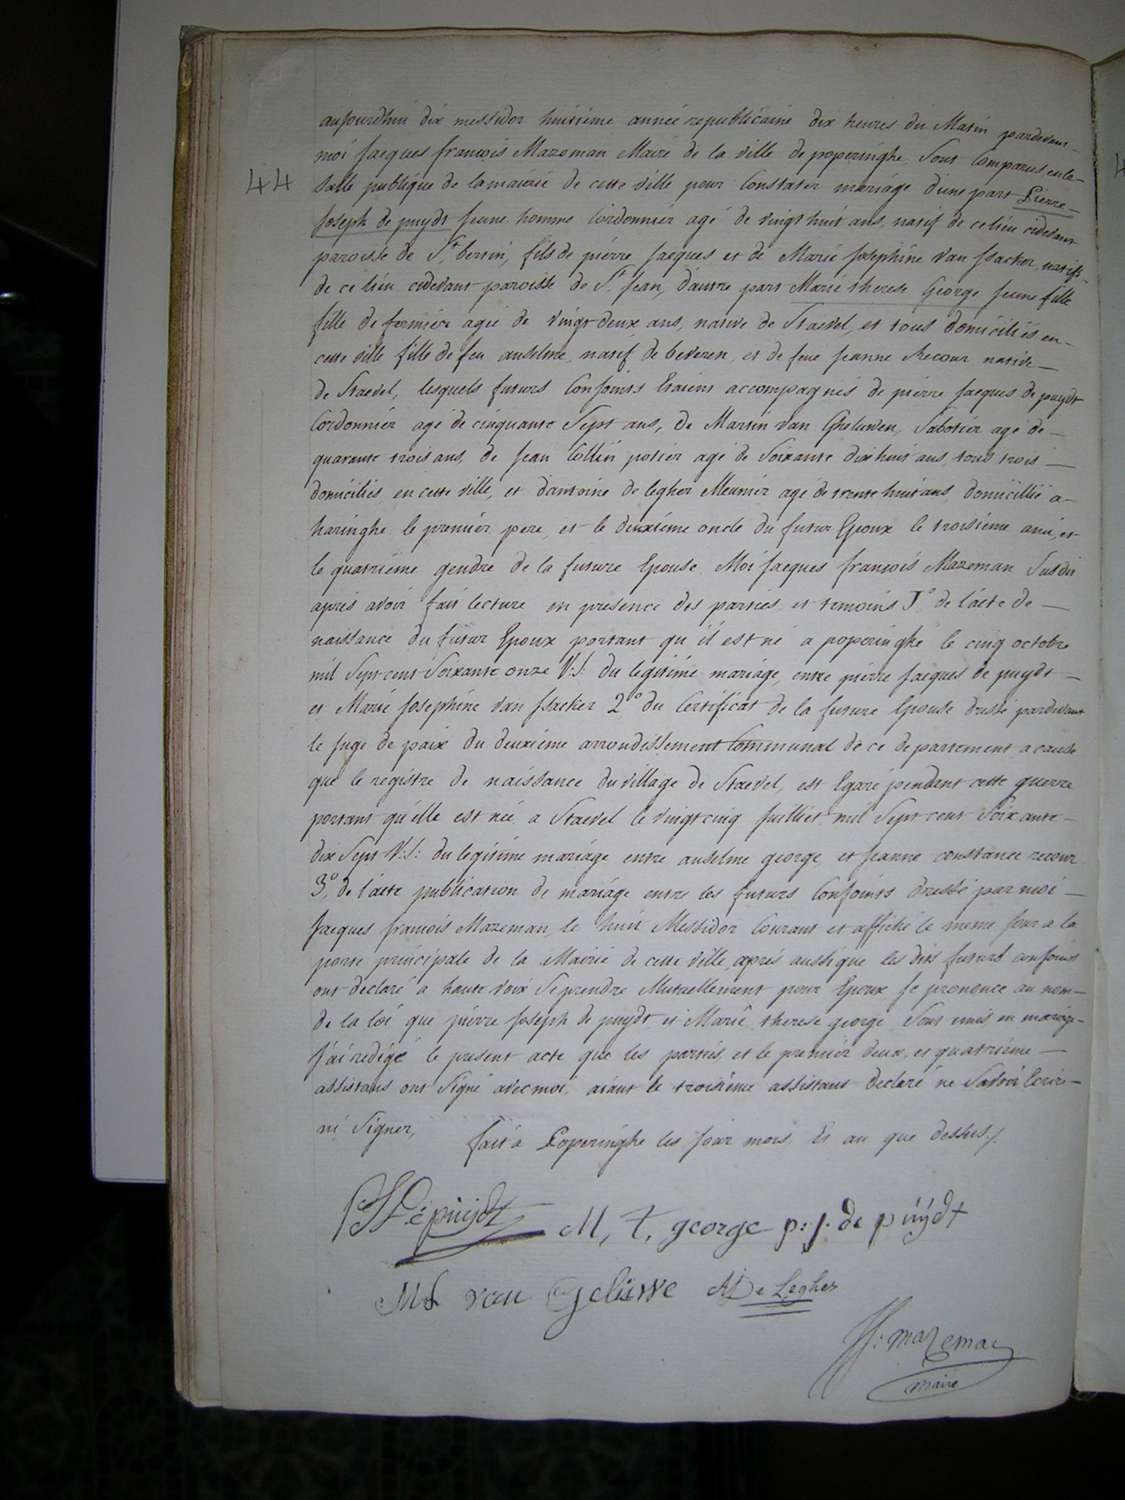 aujourdhui dix messidor huitieme année republicaine dix heures du Matin pardevant
moi jacques francois Mazeman Maire de la ville de poperinghe Sont Comparus en la
44
Salle publique de la mairie de cette ville pour Constater mariage d'une part Pierre
Joseph de puydt jeune homme Cordonnier agé de vingt huit ans natif de ce lieu cidevant
paroisse de St bertin, fils de piérre jacques et de Marie josephine van jsacker natifs
de ce lieu cidevant paroisse de St jean, dautre part Marie therese George jeune fille
fille de fermiére agée de vingt deux ans, native de Stavel, et tous domiciliés en
cette ville fille de feu anselme natif de beveren, et de feue jeanne Recour native
de Stavel, lesquels futurs Conjoints Etaient accompagnés de piérre jacques de puydt
Cordonniér agé de cinquante Sept ans, de Martin van Gheluwen, Sabotiér agé de
quarante trois ans, de jean Collin potier agé de Soixante dix huit ans, tous trois
domiciliés en cette ville, et d'antoine de legher Meunier agé de trente huit ans, domicillié a
haringhe le premiér pere, et le deuxiéme oncle du futur Epoux le troisiéme ami, et
le quatriéme gendre de la future Epouse. Moi jacques francois Mazeman Susdit
aprés avoir fait lecture en presence des parties et temoins 1° de l'acte de
naissance du futur Epoux portant qu'il est né a poperinghe le cinq octobre
mil Sept cent Soixante onze V:S: du legitime mariage, entre piérre jacques de puydt
et Marie josephine van jsacker 2° du Certificat de la future Epouse dressé pardevant
le juge de paix du deuxiéme arrondissement Communal de ce departement a cause
que le registre de naissance du village de Stavel, est Egaré pendent cette guerre
portant qu'elle est née a Stavel le vingt cinq juilliet mil Sept cent Soixante
dix Sept V:S: du legitime mariage entre anselme george et jeanne constance recour
3° de l'acte publication de mariage entre les futurs Conjoints dressé par moi
jacques francois Mazeman le huit Messidor Courant et affiché le meme jour a la
porte principale de la Mairie de cette ville, aprés aussi que les dits futurs conjoints
ont declaré a haute voix Se prendre Mutuellement pour Epoux je prononce au nom
de la loi que piérre joseph de puydt et Marie therese george Sont unis en mariage
j'ai redigé le present acte que les parties et le premiér deux, et quatriéme
assistans ont Signé avec moi, aiant le troisiéme assistant declaré ne Savoir Ecrire
ni Signer,
fait a Poperinghe les jour mois Et an que dessus.
PJ De puydt M, t, george p: j: de puydt
van Geluwe AD e Legher
JF: mazeman
maire